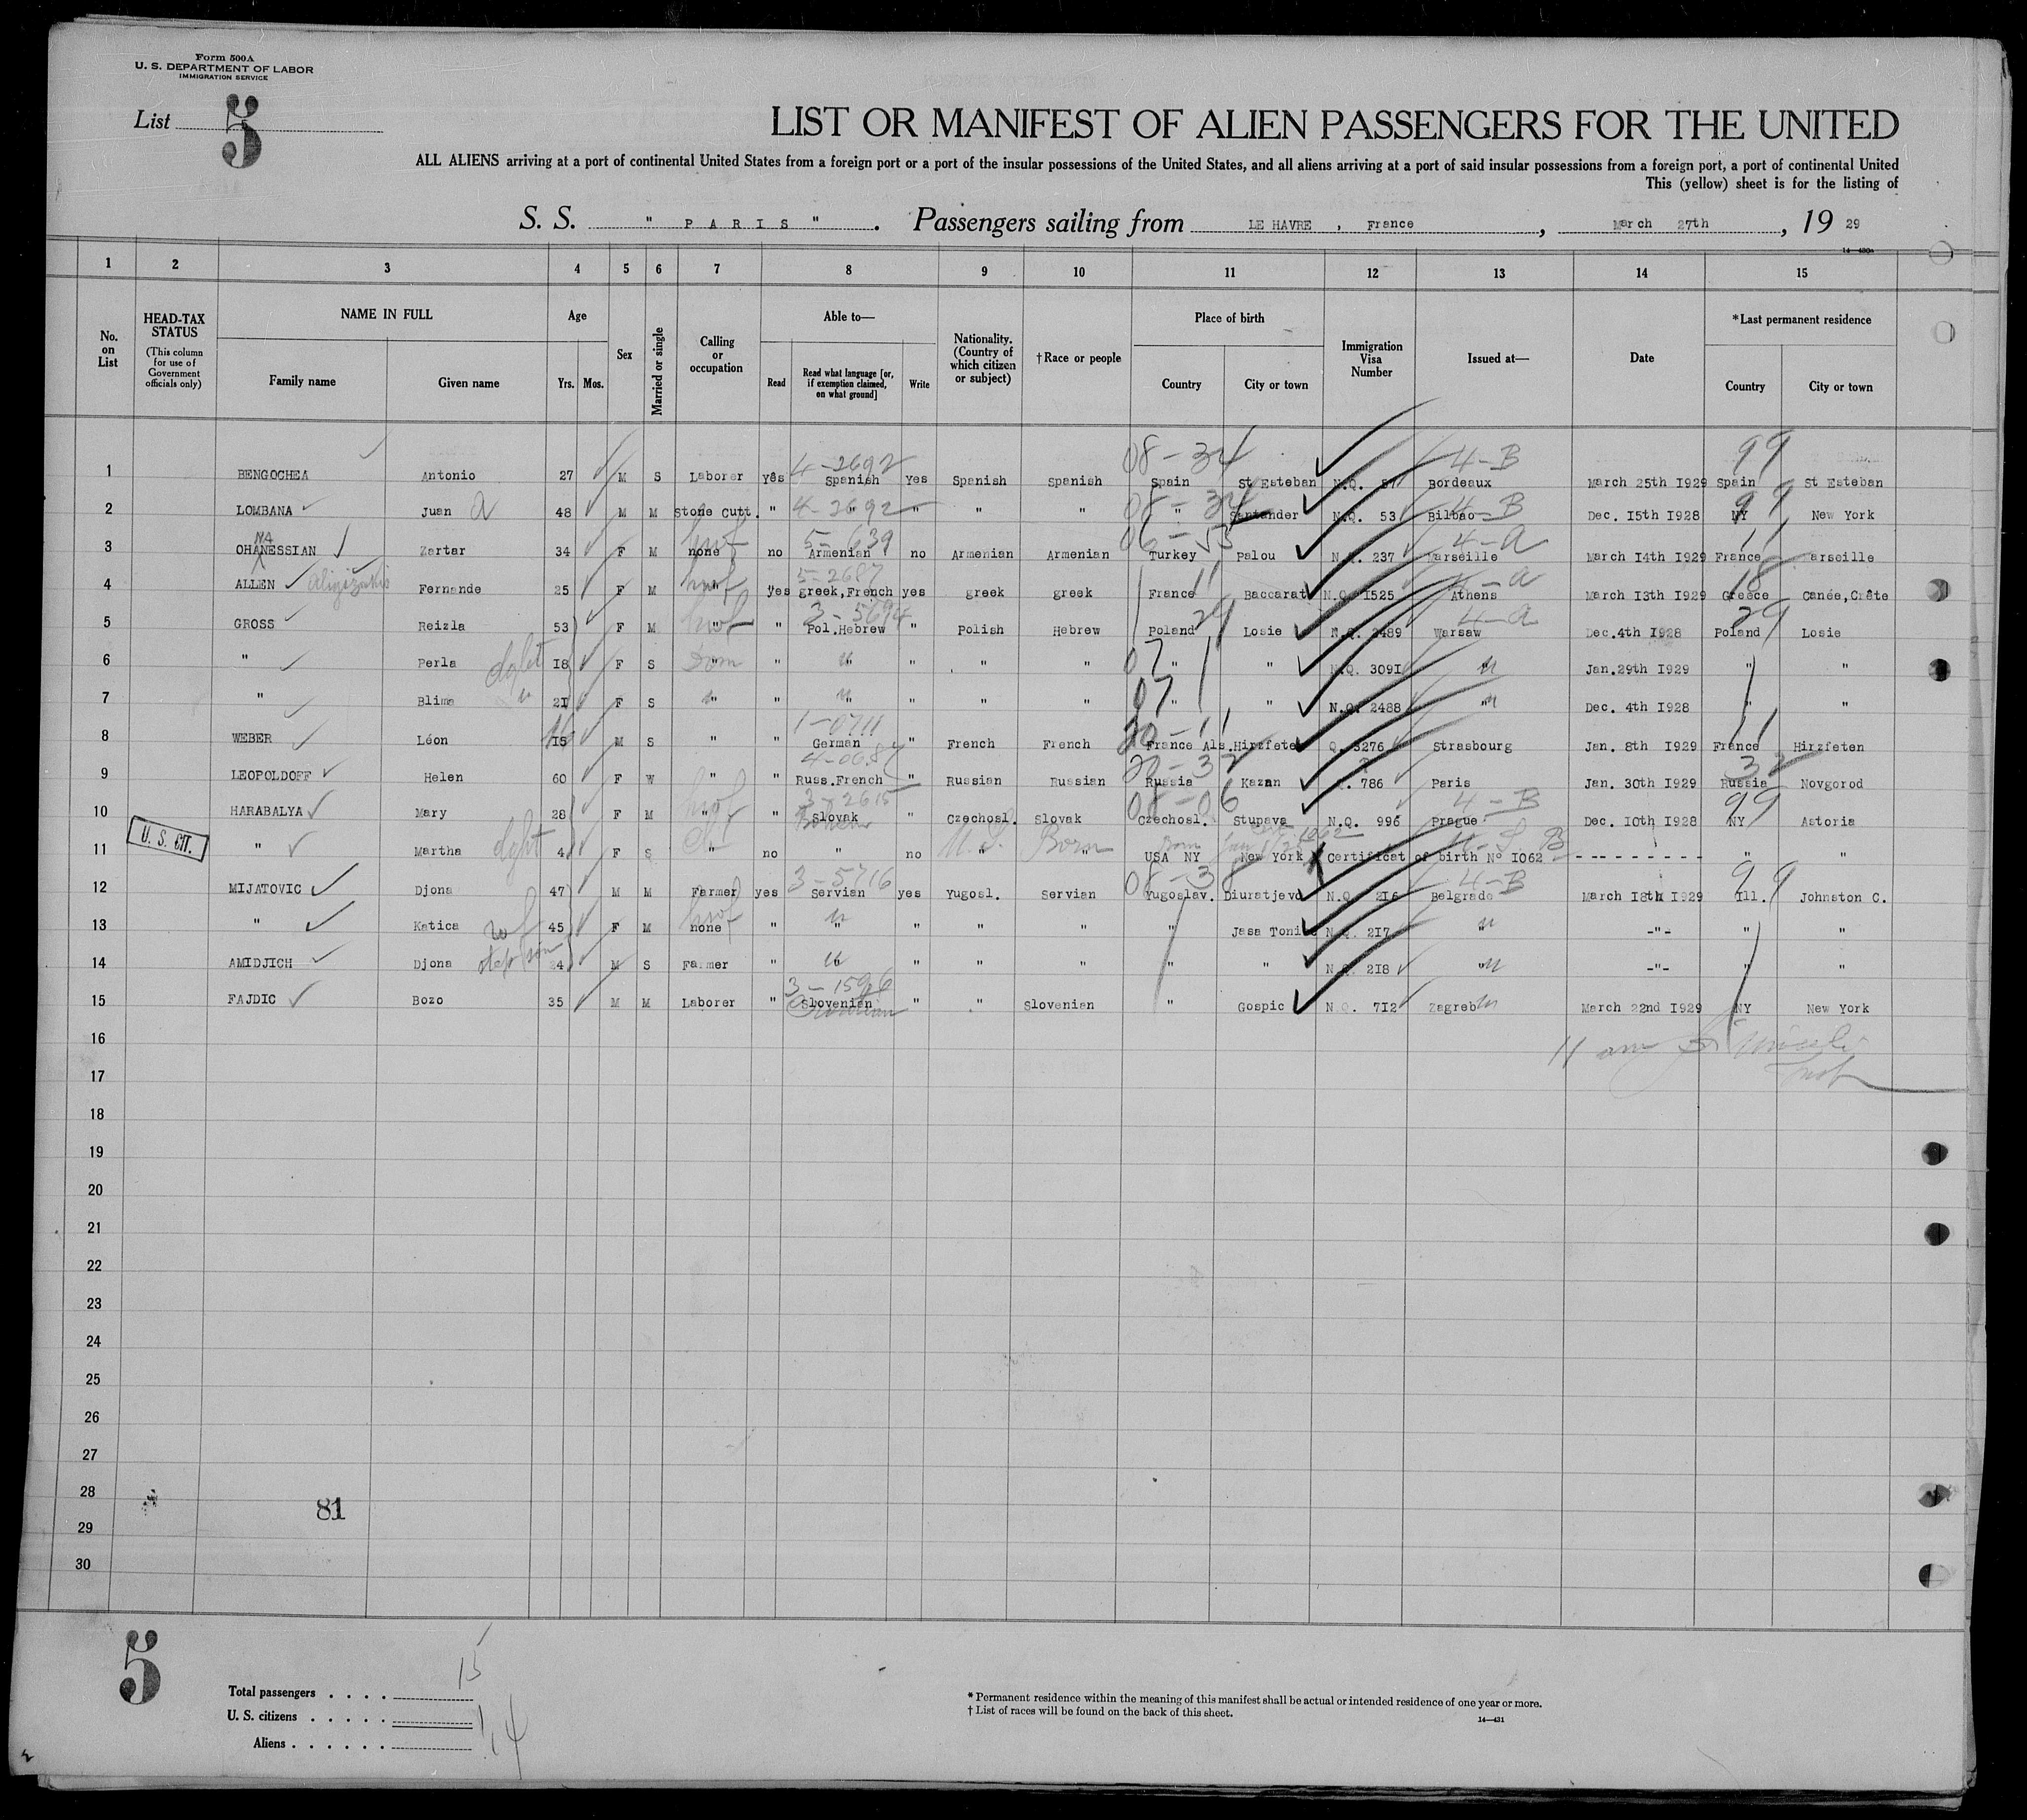 Form 500A
U. S. DEPARTMENT OF LABOR
IMMIGRATION SERVICE
List 5
LIST OR MANIFEST OF ALIEN PASSENGERS FOR THE UNITED
ALL ALIENS arriving at a port of continental United States from a foreign port or a port of the insular possessions of the United States, and all aliens arriving at a port of said insular possessions from a foreign port, a port of continental United
This (yellow) sheet is for the listing of
S. S. " PARIS " . Passengers sailing from LE HAVRE , France , March 27th , 19 29
14-430A
1 2 3 4 5 6 7 8 9 10 11 12 13 14 15
No. on List
HEAD-TAX STATUS (This column for use of Government officials only)
NAME IN FULL
Family name Given name
Age
Yrs. Mos.
Sex
Married or single
Calling or occupation
Able to—
Read Read what language [or, if exemption claimed, on what ground] Write
Nationality. (Country of which citizen or subject)
†Race or people
Place of birth
Country City or town
Immigration Visa Number
Issued at—
Date
*Last permanent residence
Country City or town
08-34 99
4-2692 4-B
1 BENGOCHEA Antonio 27 M S Laborer yês Spanish yes Spanish Spanish Spain St Esteban N.Q. 57 Bordeaux March 25th I929 Spain St Esteban
4-2692 08-34 4-B 99
2 LOMBANA Juan a 48 M M Stone Cutt. " " " " " " Santander N.Q. 53 Bilbao Dec. I5th I928 NY New York
NA hwf 5-639 06-53 4-a 11
3 OHANESSIAN Zartar 34 F M none no Armenian no Armenian Armenian Turkey Palou N.Q. 237 Marseille March I4th I929 France Marseille
Aligizakis hwf 5-2687 11 4-a 18
4 ALLEN Fernande 25 F M " yes greek,French yes greek greek France Baccarat N.Q. I525 Athens March I3th I929 Greece Canée,Crête
hwf 3-5694 29 4-a 29
5 GROSS Reizla 53 F M " " Pol.Hebrew " Polish Hebrew Poland Losie N.Q. 2489 Warsaw Dec.4th I928 Poland Losie
dght Dom 07
6 " Perla I8 F S " " " " " " " " N.Q. 309I " Jan.29th I929 " "
07
7 " Blima 2I F S " " " " " " " " N.Q. 2488 " Dec. 4th I928 " "
16 1-0711 20-11 11
8 WEBER Léon I5 M S " " German " French French France Als. Hirzfeten Q. 3276 Strasbourg Jan. 8th I929 France Hirzfeten
20-32 32
9 LEOPOLDOFF Helen 60 F W " " Russ.French " Russian Russian Russia Kazan Q. 786 Paris Jan. 30th I929 Russia Novgorod
hwf 3-2615 08-06 4-B 99
10 HARABALYA Mary 28 F M " " Slovak " Czechosl. Slovak Czechosl. Stupava N.Q. 996 Prague Dec. I0th I928 NY Astoria
U. S. CIT. dght U.S. Born
11 " Martha 4 F S " no " no " " USA NY New York Certificat of birth No I062 - - - - - - - - - - " "
3-5716 08-38 4-B 99
12 MIJATOVIC Djona 47 M M Farmer yes Servian yes Yugosl. Servian Yugoslav. Diuratjevo N.Q. 2I6 Belgrade March I8th I929 Ill. Johnston C.
wf hwf
13 " Katica 45 F M none " " " " " " Jasa Toni N.Q. 2I7 " -"- " "
step son
14 AMIDJICH Djona 24 M S Farmer " " " " " " " N.Q. 2I8 " -"- " "
3-1596
15 FAJDIC Bozo 35 M M Laborer " Slovenian " " Slovenian " Gospic N.Q. 7I2 Zagreb March 22nd I929 NY New York
Croatian
16
17
18
19
20
21
22
23
24
25
26
27
28 81
29
30
5
Total passengers . . . . 15
U. S. citizens . . . . . 1
Aliens . . . . . . 14
* Permanent residence within the meaning of this manifest shall be actual or intended residence of one year or more.
† List of races will be found on the back of this sheet.
14—431